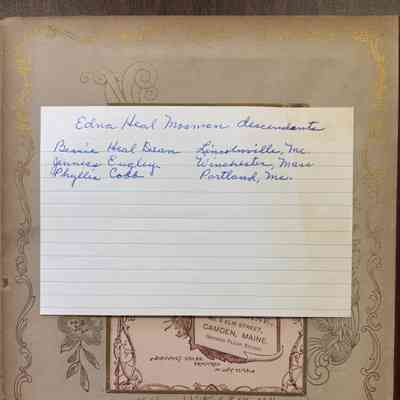 Edna Heal Mosman descendants
Bessie Heal Dean Lincolnville, Me.
Jenness Eugley Winchester, Mass
Phyllis Cobb Portland, Me.
ELM STREET,
CAMDEN, MAINE.